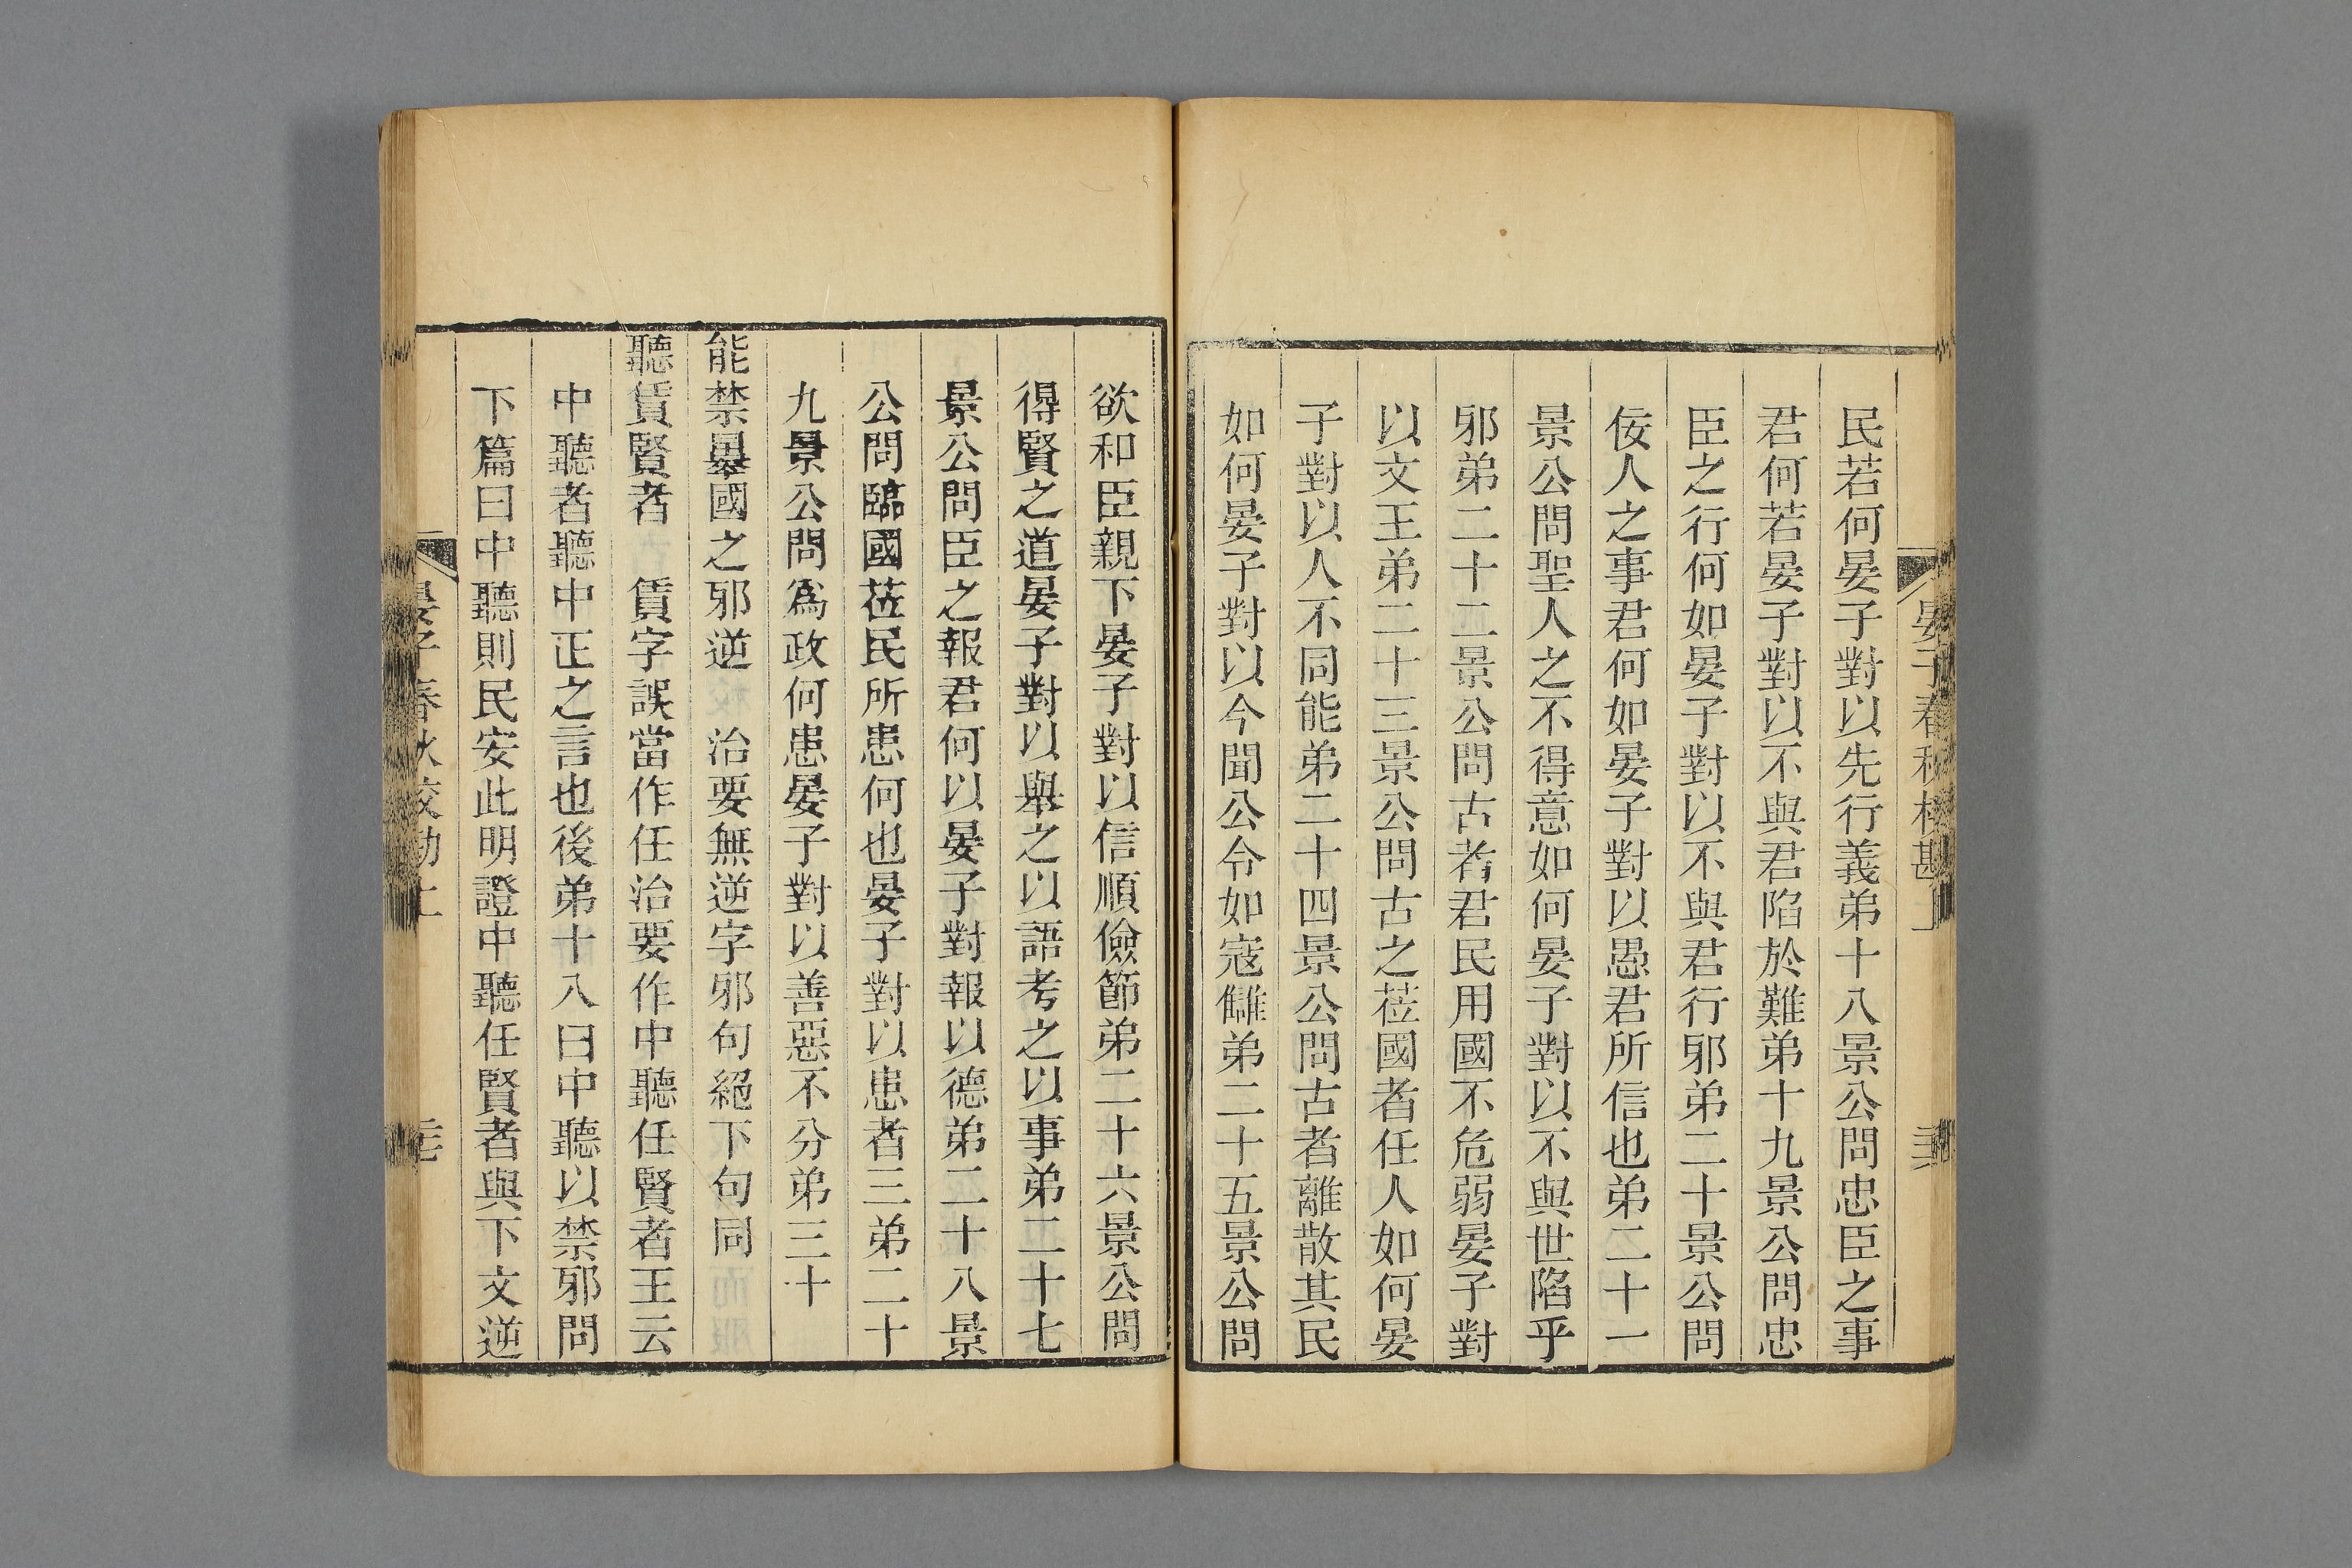 民若何晏子對以先行義弟十八景公問忠臣之事
君何若晏子對以不與君陷於難弟十九景公問忠
臣之行何如晏子對以不與君行邪弟二十景公問
佞人之事君何如晏子對以愚君所信也弟二十一
景公問聖人之不得意如何晏子對以不與世陷乎
邪弟二十二景公問古者君民用國不危弱晏子對
以文王弟二十三景公問古之莅國者任人如何晏
子對以人不同能弟二十四景公問古者離散其民
如何晏子對以今聞公令如寇讎弟二十五景公問
欲和臣親下晏子對以信順儉節弟二十六景公問
得賢之道晏子對以舉之以語考之以事弟二十七
景公問臣之報君何以晏子對報以德弟二十八景
公問臨國莅民所患何也晏子對以患者三弟二十
九景公問爲政何患晏子對以善惡不分弟三十
能禁暴國之邪逆　治要無逆字邪句絕下句同
聽賃賢者　賃字誤當作任治要作中聽任賢者王云
中聽者聽中正之言也後弟十八曰中聽以禁邪問
下篇曰中聽則民安此明證中聽任賢者與下文逆
晏子春秋校勘上